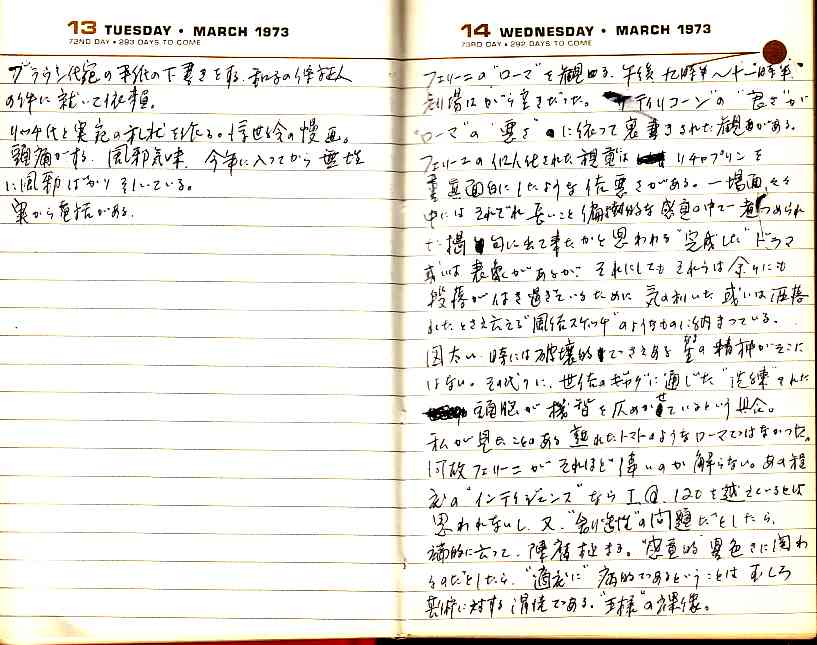 13 TUESDAY • MARCH 1973
72ND DAY • 293 DAYS TO COME
ブラウン氏宛の手紙の下書きをする. 和子の保証人
の件に就いて依頼。
リッチ氏と実宛の礼状を書く。浮世絵の漫画。
頭痛がする. 風邪気味. 今年に入ってから無性
に風邪ばかり引いている。
実から電話がある.
14 WEDNESDAY • MARCH 1973
73RD DAY • 292 DAYS TO COME
フェリーニの"ローマ"を観る. 午後九時半〜十一時半.
劇場はがら空きだった。"サティリコーン"の"良さ"が
"ローマ"の"悪さ"に依って裏書きされた観がある。
フェリーニの 化された視覚は チャプリンを
真面目にしたような 悪さがある。一場面々々
中にはそれぞれ長いこと偏執的な感覚の中で煮つめられ
た揚句に出て来たかと思われる"完成した"ドラマ
或いは表象があるが. それにしてもそれらは余りにも
段落が付き過ぎているために 気の利いた或いは
たとさえ云える"風俗スケッチ"のようなものに納まっている.
図太い. 時には破壊的でさえある の精神がそこに
はない. その代りに. 世俗のギャグに通じた"洗練"された
頭脳が機智を仄めかせているという具合。
私が見たことのある熟れたトマトのようなローマではなかった。
何故フェリーニがそれほど偉いのか解らない。あの程
度の"インテリジェンス"なら I.Q. 120を越えているとは
思われないし. 又. "創造性"の問題だとしたら.
的に云って. 陳腐極まる。"感覚的"異色さに関わ
るのだとしたら. "適度に"病的であるということはむしろ
芸術に対する冒涜である. "王様"の裸像。